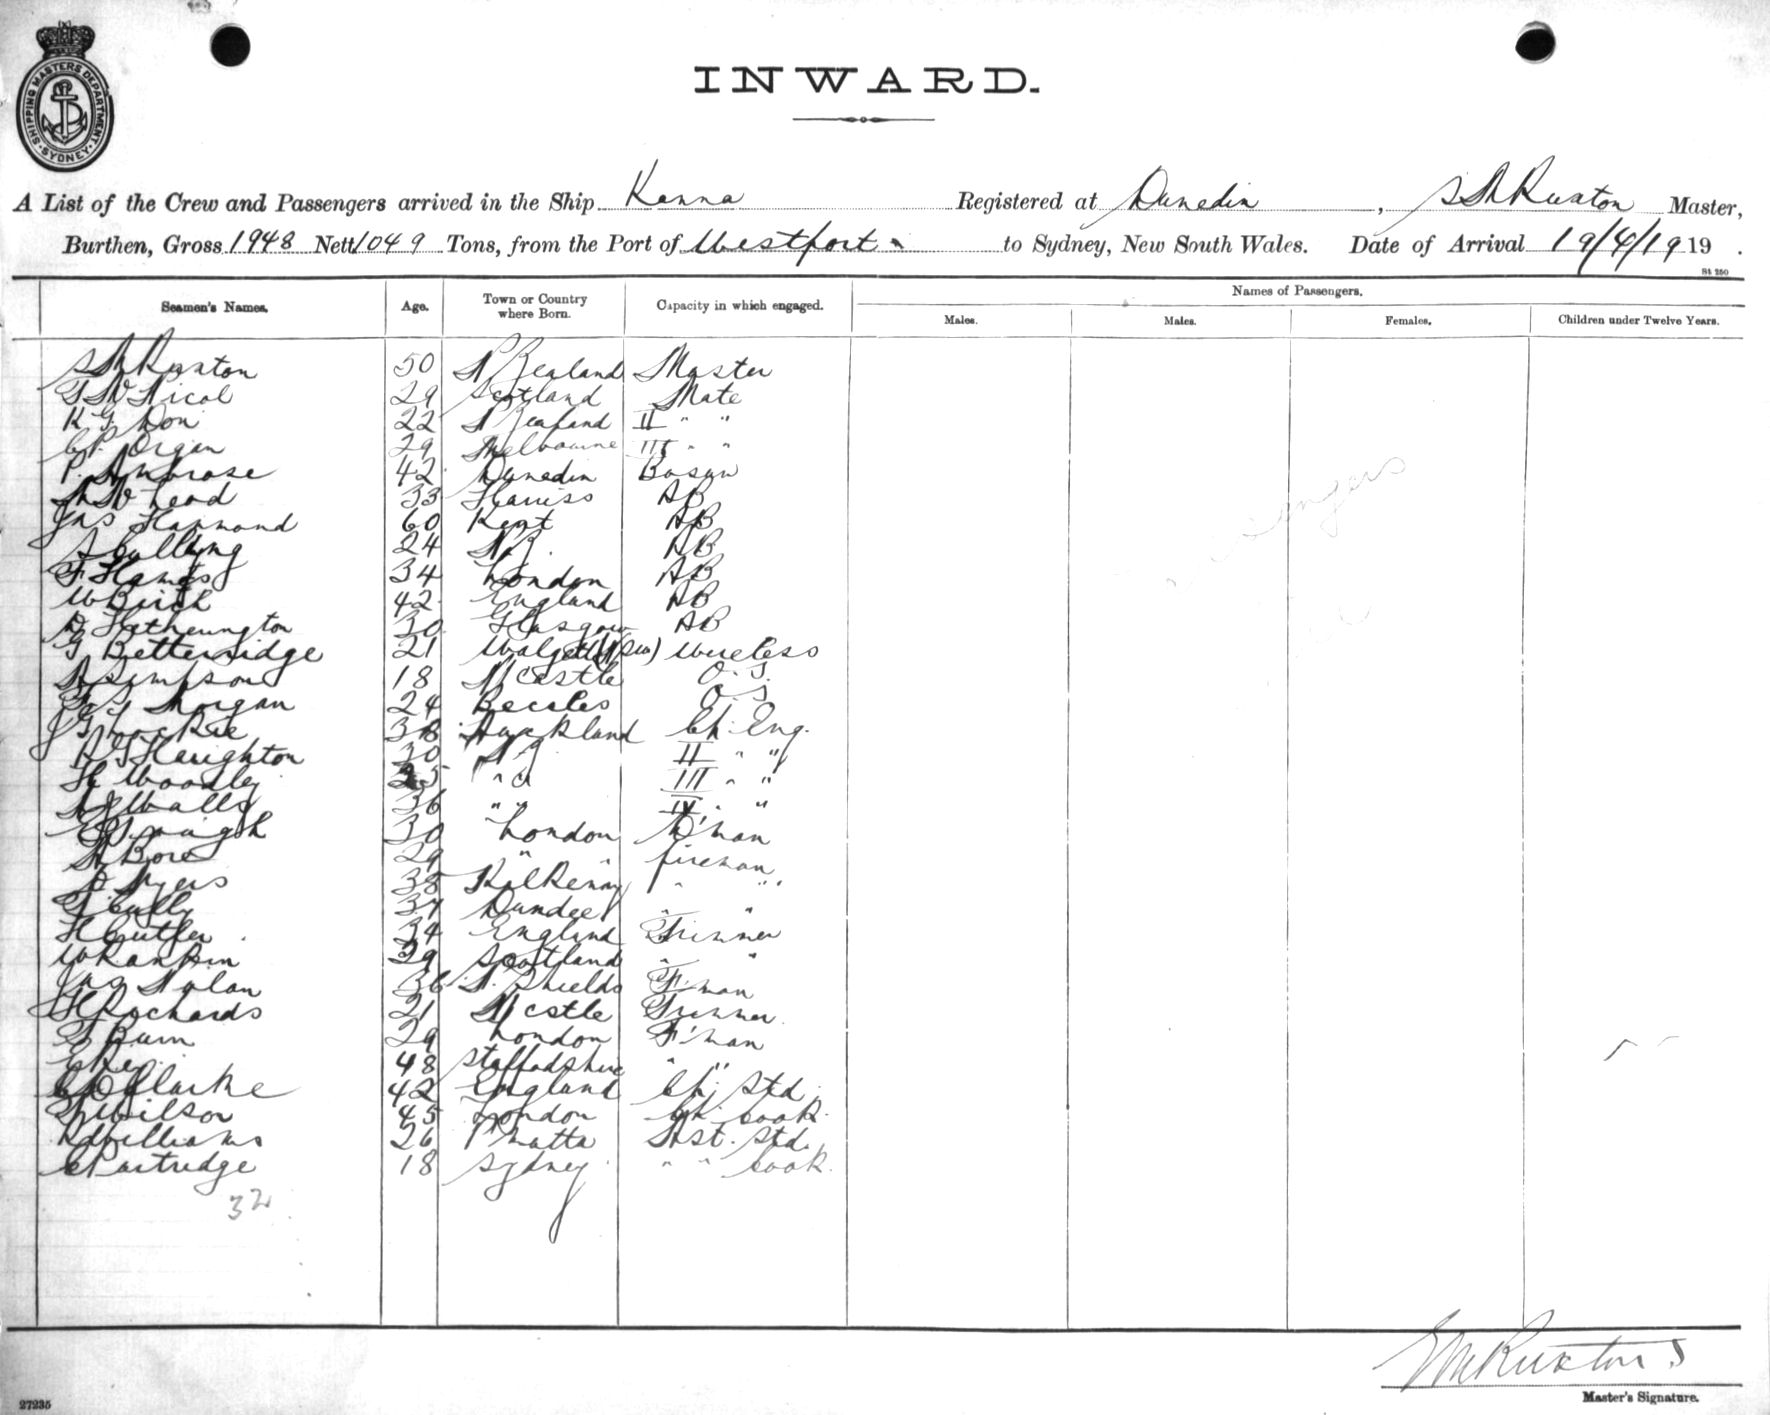 SHIPPING MASTERS DEPARTMENT
SYDNEY
INWARD.
A List of the Crew and Passengers arrived in the Ship Kanna Registered at Dunedin, S M Ruxton Master,
Burthen, Gross 1948 Nett 1049 Tons, from the Port of Westport to Sydney, New South Wales. Date of Arrival 19/4/19 19 .
St 250
Seamen's Names. Age. Town or Country where Born. Capacity in which engaged. Names of Passengers.
Males. Males. Females. Children under Twelve Years.
S M Ruxton 50 N Zealand Master
T W Nicol 29 Scotland Mate
K G Don 22 N Zealand II " "
C P. Organ 29 Melbourne III " "
P. Ambrose 42 Dunedin Bosun
33 AB
Jas Hammond 60 Kent AB
24 N Z. AB
34 London AB
W Birch 42 England AB
D Hetherington 30 Glasgow AB
G Betteridge 21 Wireless
A Simpson 18 N castle O. S.
Morgan 24 Beccles O. S.
38 Auckland Ch. Eng.
R G Haughton 30 N. Z II " "
H Woodley 25 " " III " "
Walls 36 " " IV. "
30 London
Bore 29 " " fireman
Myers 38 Kilkenny " "
T Cully 37 Dundee " "
H Cutler 34 England Trimmer
W Rankin 39 Scotland " "
Jas Nylan 36 N. Shields F'man
H Richards 21 N castle Trimmer
Burn 29 London F'man
48 Staffodshire " "
Clarke 42 England Ch. Std.
Wilson 45 London Ch. Cook.
Williams 26 P'matta Asst. Std.
C Partridge 18 Sydney " " Cook.
32
S M Ruxton
Master's Signature.
27235